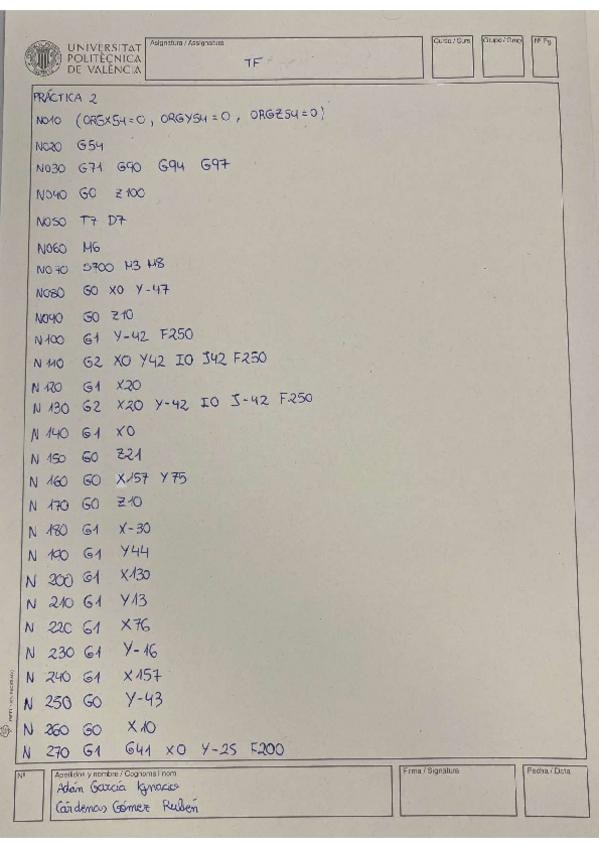 UNIVERSITAT
POLITÈCNICA
DE VALÈNCIA
Asignatura / Assignatura
Curso / Curs
Grupo / Grup
Nº Pg.
TF
PRÁCTICA 2
N010 (ORGX54=0, ORGY54=0, ORGZ54=0)
N020 G54
N030 G71 G90 G94 G97
N040 G0 Z100
N050 T7 D7
N060 M6
N070 S700 M3 M8
N080 G0 X0 Y-47
N090 G0 Z10
N100 G1 Y-42 F250
N110 G2 X0 Y42 I0 J42 F250
N120 G1 X20
N130 G2 X20 Y-42 I0 J-42 F250
N140 G1 X0
N150 G0 Z21
N160 G0 X157 Y75
N170 G0 Z10
N180 G1 X-30
N190 G1 Y44
N 200 G1 X130
N 210 G1 Y13
N 220 G1 X76
N 230 G1 Y-16
N 240 G1 X157
N 250 G0 Y-43
N 260 G0 X10
N 270 G1 G41 X0 Y-25 F200
Nº
Apellidos y nombre / Cognoms i nom
Adán García Ignacio
Cárdenas Gómez Rubén
Firma / Signatura
Fecha / Data